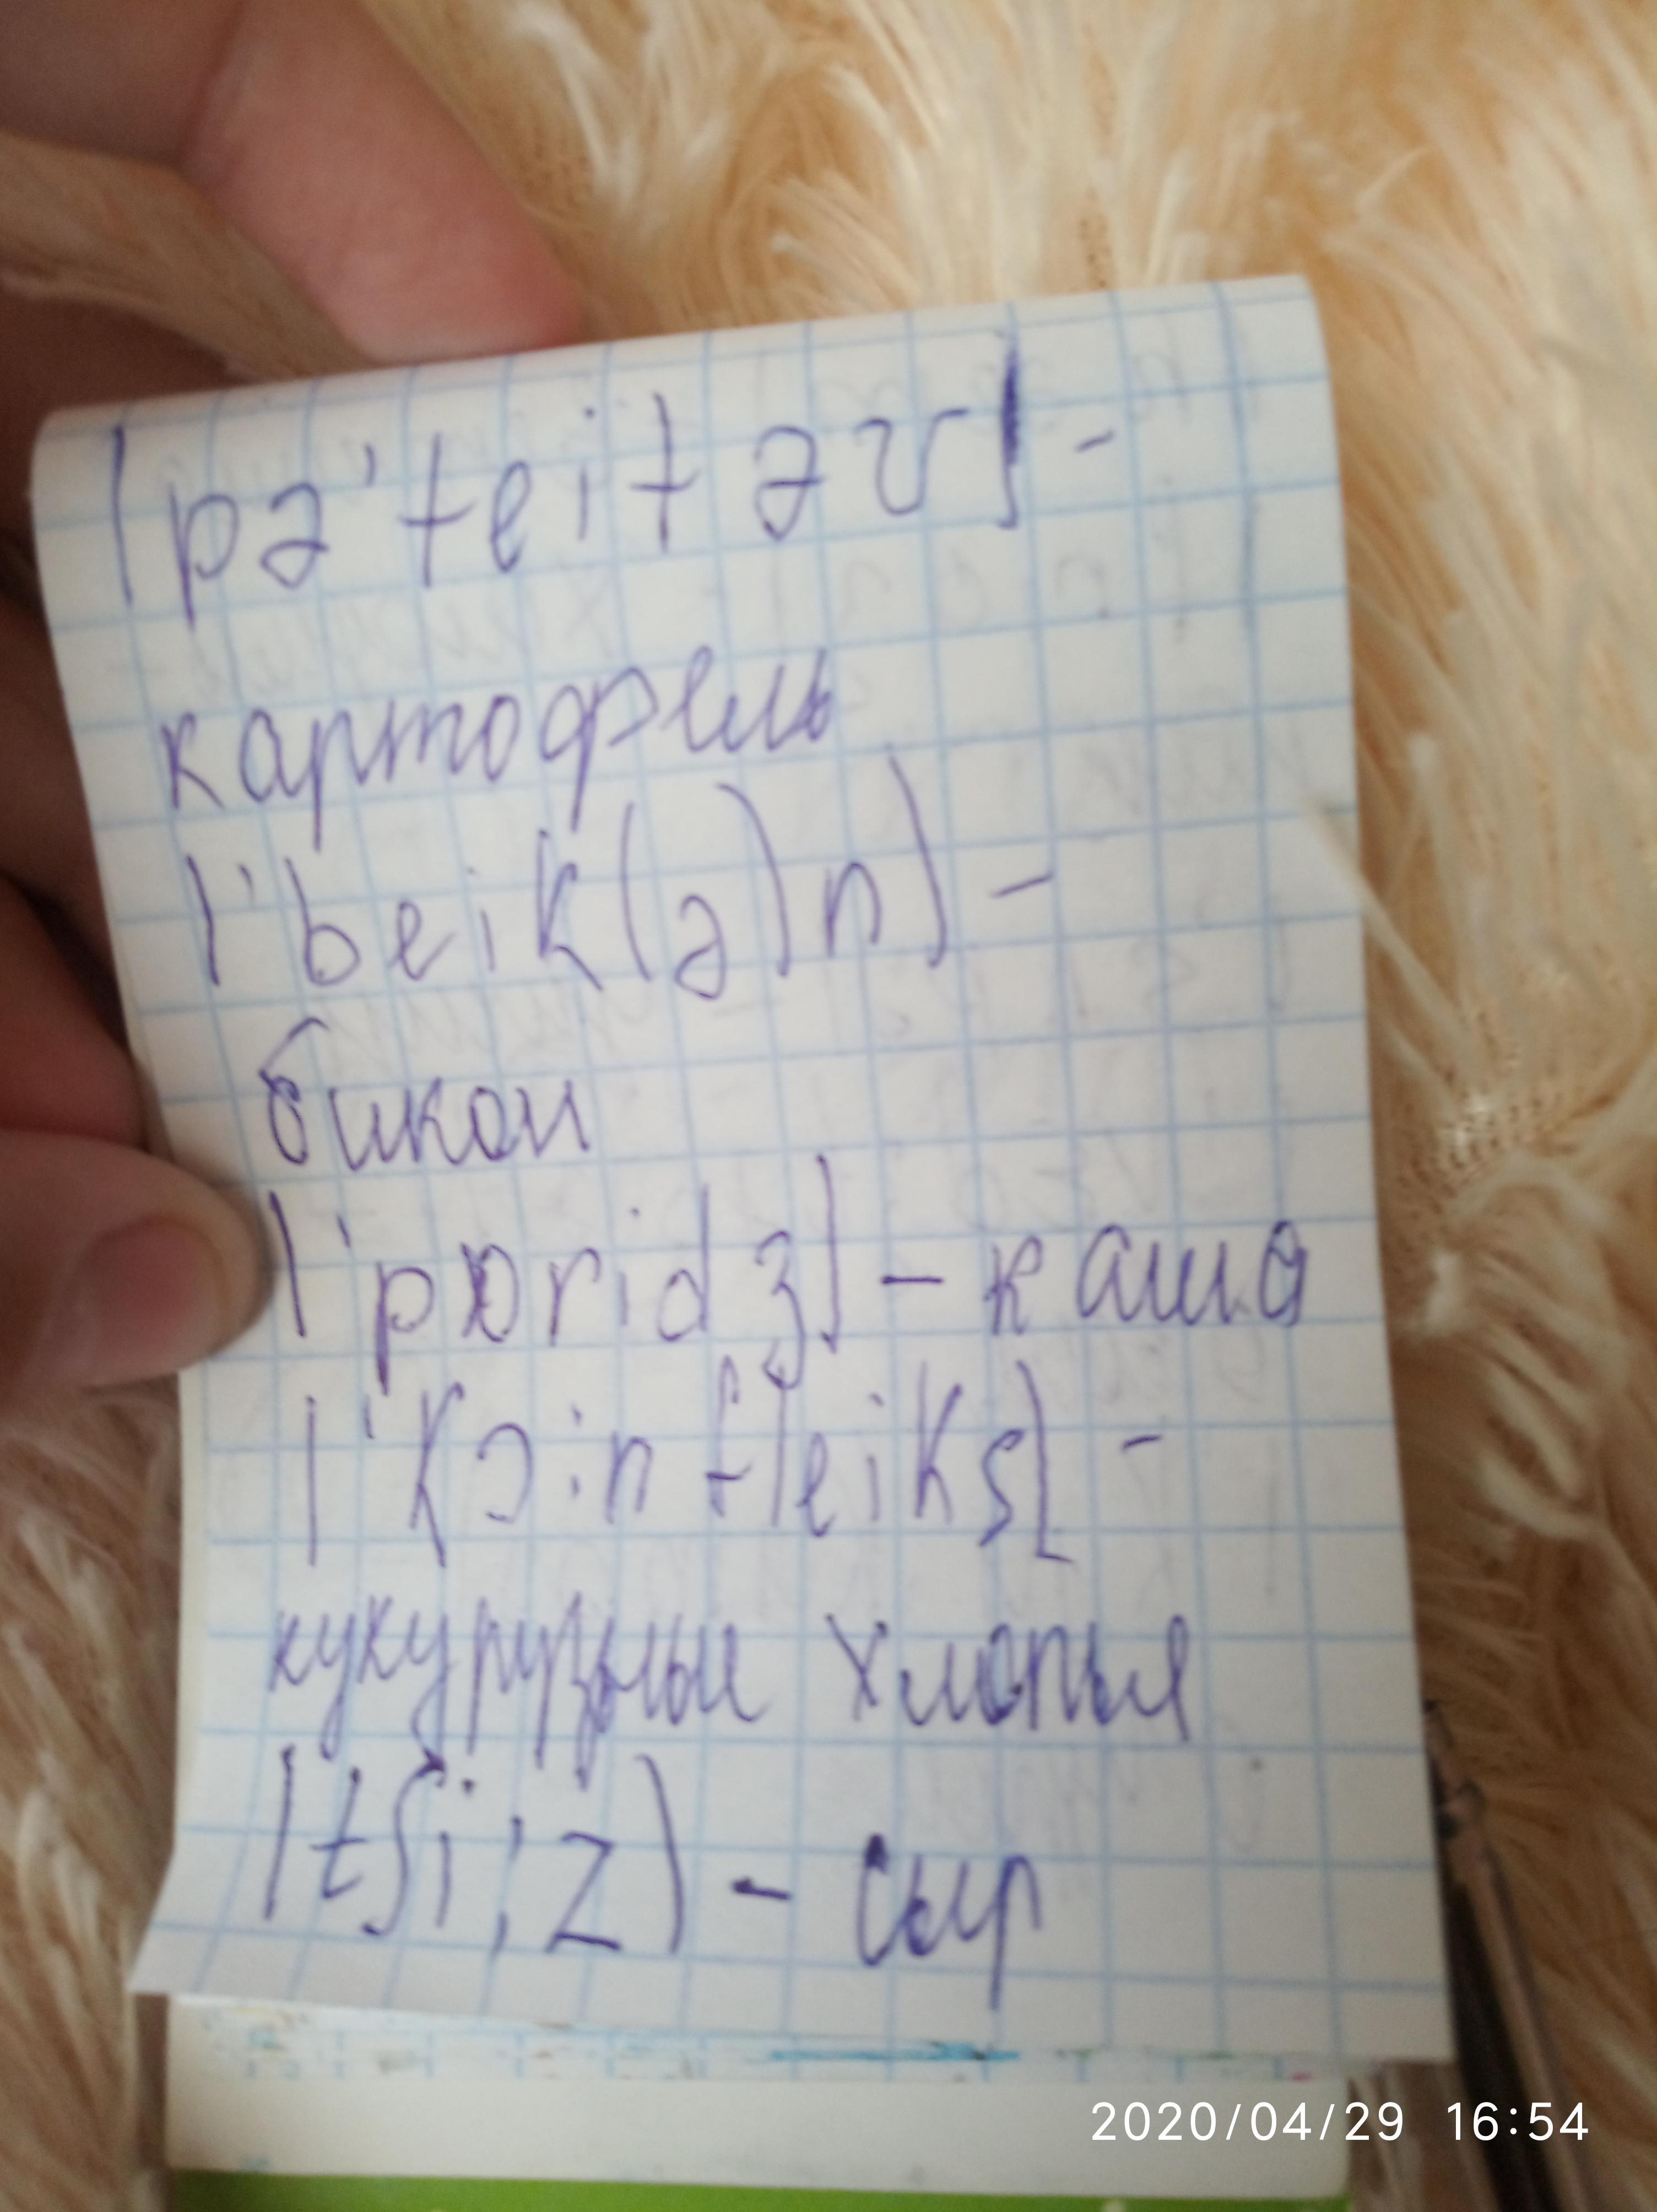 [pə'teitəʊ] -
картофель
['beik(ə)n] -
бикон
['pɒridʒ] - каша
['kɔ:nfleiks] -
кукурузные хлопья
[tʃi:z] - сыр
2020/04/29 16:54